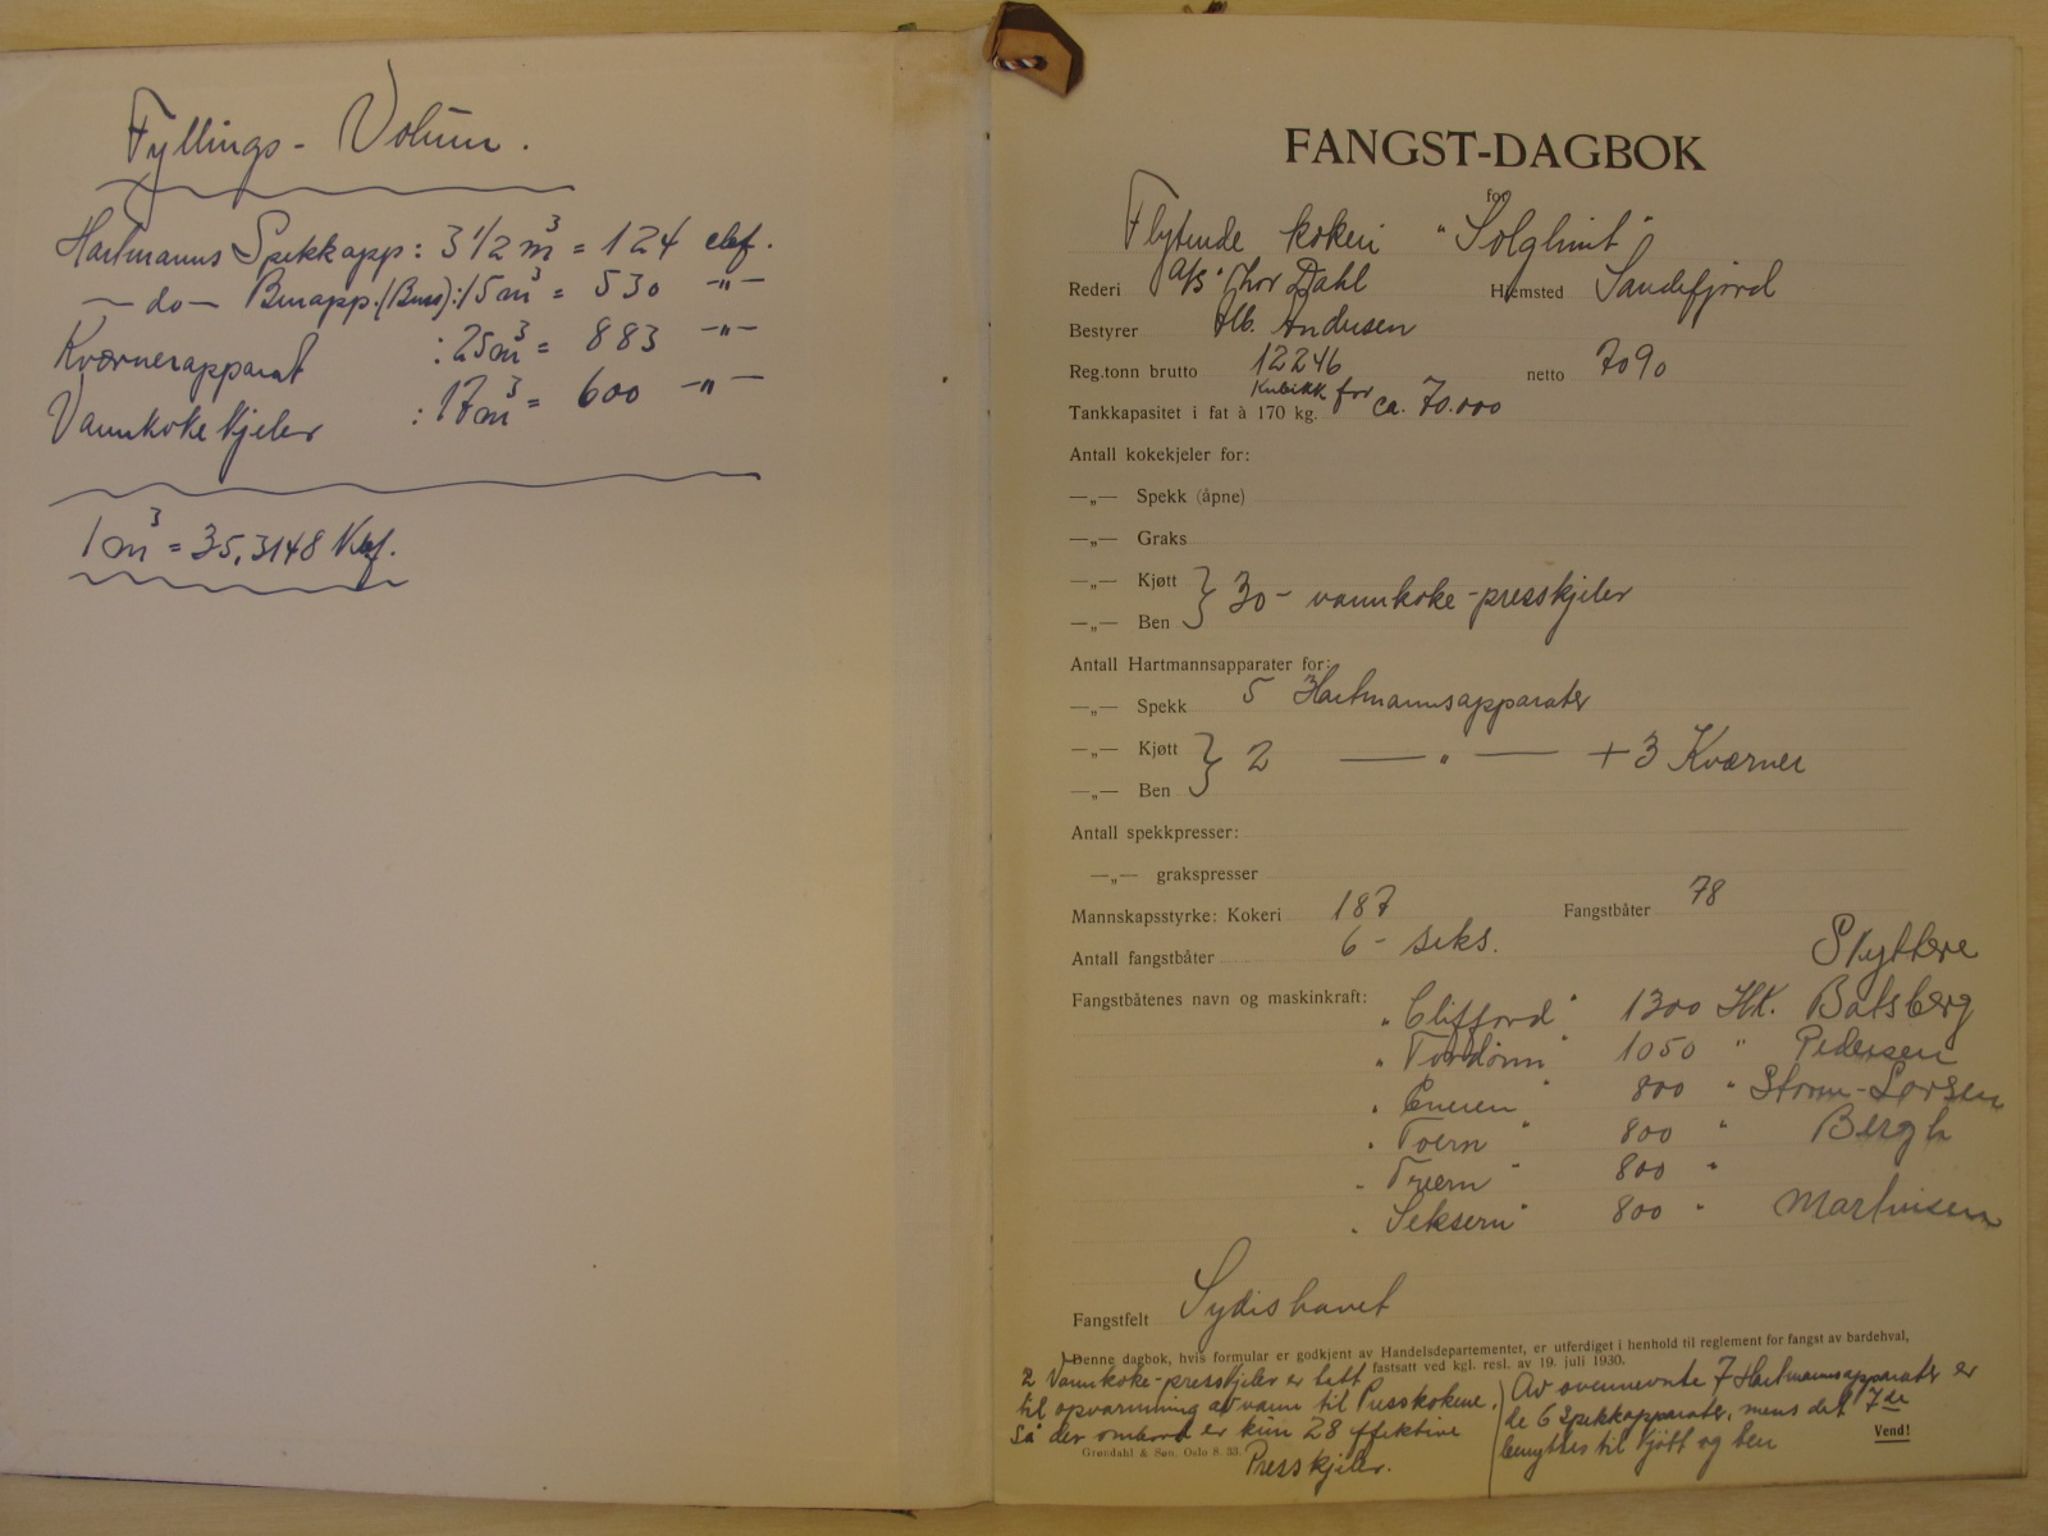 Fyllings - Volum.
Hartmanns Spekkapp: 3 1/2 m³ = 124 cbf.
—do— Benapp. (Buss): 15m³ = 530 —"—
Kværnerapparat : 25m³ = 883 —"—
Vannkokekjeler : 17m³ = 600 —"—
1m³ = 35,3148 Kbf.
FANGST-DAGBOK
for
Flytende kokeri "Solglimt"
Rederi A/S Thor Dahl Hjemsted Sandefjord
Bestyrer Alb. Andersen
Reg.tonn brutto 12246 netto 7090
Tankkapasitet i fat à 170 kg. Kubikk for ca. 70.000
Antall kokekjeler for:
—„— Spekk (åpne)
—„— Graks
—„— Kjøtt } 30 - vannkoke-presskjeler
—„— Ben
Antall Hartmannsapparater for:
—„— Spekk 5 Hartmannsapparater
—„— Kjøtt } 2 — " — + 3 Kværner
—„— Ben
Antall spekkpresser:
—„— grakspresser
Mannskapsstyrke: Kokeri 187 Fangstbåter 78
Antall fangstbåter 6 - seks.
Skyttere
Fangstbåtenes navn og maskinkraft: "Clifford" 1300 HK. Batsberg
"Tordönn" 1050 " Pedersen
"Eneren" 800 " Storm-Larsen
"Toern" 800 " Bergh
"Treern" 800 "
"Seksern" 800 " Martinsen
Fangstfelt Sydishavet
Denne dagbok, hvis formular er godkjent av Handelsdepartementet, er utferdiget i henhold til reglement for fangst av bardehval,
fastsatt ved kgl. resl. av 19. juli 1930.
2 Vannkoke-presskjeler er tatt
til opvarmning av vann til Presskokene.
Så der ombord er kun 28 effektive
Presskjeler.
Av ovennevnte 7 Hartmannsapparater er
de 6 Spekkapparater, mens det 7de
benyttes til kjött og ben
Vend!
Grøndahl & Søn. Oslo 8. 33.